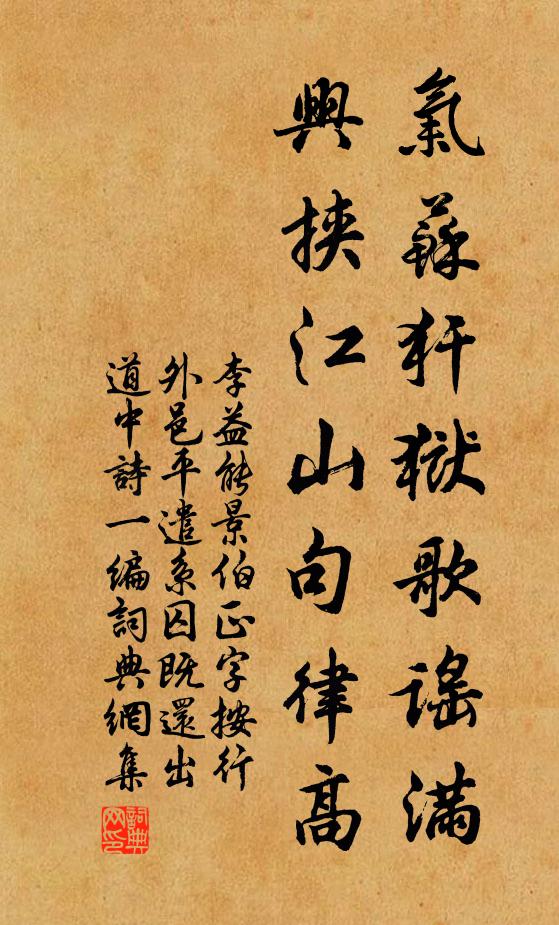 氣蘇犴獄歌謠滿
興挾江山句律高
李益能景伯正字按行
外邑平遣系囚既還出
道中詩一編詞典網集
詞典網印